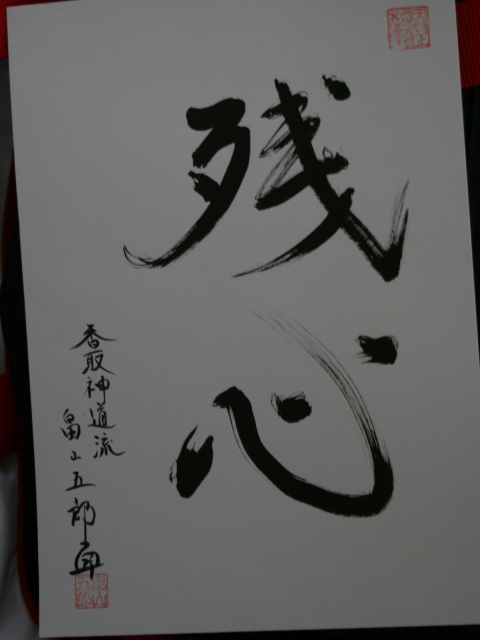 残心
香取神道流
畠山五郎